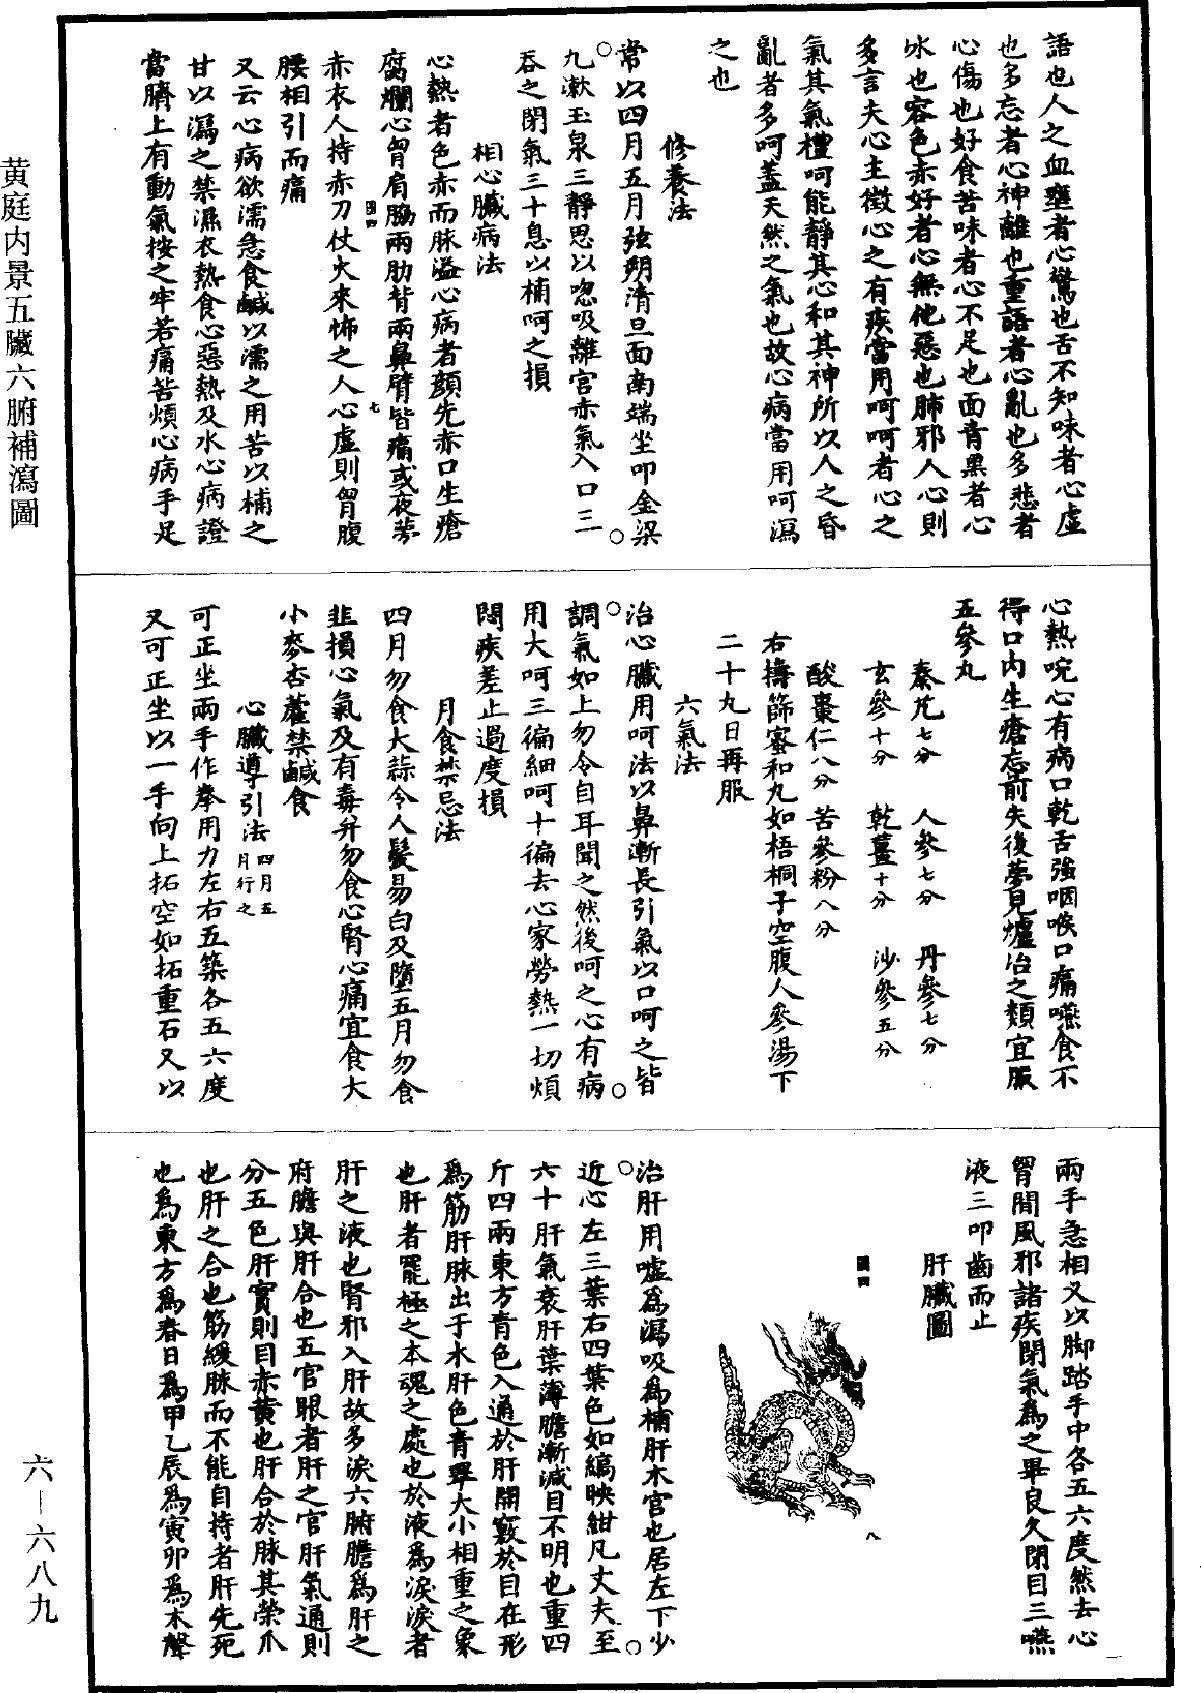 黄庭内景五臟六腑補瀉圖
六—六八九
語也人之血壅者心驚也舌不知味者心虛
也多忘者心神離也重語者心亂也多悲者
心傷也好食苦味者心不足也面青黑者心
氷也容色赤好者心無他惡也肺邪入心則
多言夫心主徵心之有疾當用呵呵者心之
氣其氣禮呵能靜其心和其神所以人之昏
亂者多呵蓋天然之氣也故心病當用呵瀉
之也
修養法
常以四月五月弦朔清旦面南端坐叩金梁
九漱玉泉三靜思以吸離宮赤氣入口三
吞之閉氣三十息以補呵之損
相心臟病法
心熱者色赤而脉溢心病者顏先赤口生瘡
腐爛心胷肩脇兩肋背兩鼻臂皆痛或夜夢
圖四
七
赤衣人持赤刀仗火來怖之人心虛則胷腹
腰相引而痛
又云心病欲濡急食鹹以濡之用苦以補之
甘以瀉之禁濕衣熱食心惡熱及水心病證
當臍上有動氣按之牢若痛苦煩心病手足
心熱啘心有病口乾舌強咽喉口痛嚥食不
得口內生瘡忘前失後夢見爐冶之類宜服
五參丸
秦艽七分 人參七分 丹參七分
玄參十分 乾薑十分 沙參五分
酸棗仁八分 苦參粉八分
右擣篩蜜和丸如梧桐子空腹人參湯下
二十九日再服
六氣法
治心臟用呵法以鼻漸長引氣以口呵之皆
調氣如上勿令自耳聞之然後呵之心有病
用大呵三徧細呵十徧去心家勞熱一切煩
悶疾差止過度損
月食禁忌法
四月勿食大蒜令人髮易白及墮五月勿食
韭損心氣及有毒并勿食心腎心痛宜食大
小麥杏藿禁鹹食
心臟導引法四月五月行之
可正坐兩手作拳用力左右五築各五六度
又可正坐以一手向上拓空如拓重石又以
兩手急相叉以脚踏手中各五六度然去心
胷間風邪諸疾閉氣為之畢良久閉目三嚥
液三叩齒而止
肝臟圖
圖四
八
治肝用噓為瀉吸為補肝木宮也居左下少
近心左三葉右四葉色如縞映紺凡丈夫至
六十肝氣衰肝葉薄膽漸減目不明也重四
斤四兩東方青色入通於肝開竅於目在形
為筋肝脉出于水肝色青翠大小相重之象
也肝者罷極之本魂之處也於液為淚淚者
肝之液也腎邪入肝故多淚六腑膽為肝之
府膽與肝合也五官眼者肝之官肝氣通則
分五色肝實則目赤黃也肝合於脉其榮爪
也肝之合也筋緩脉而不能自持者肝先死
也為東方為春日為甲乙辰為寅卯為木聲